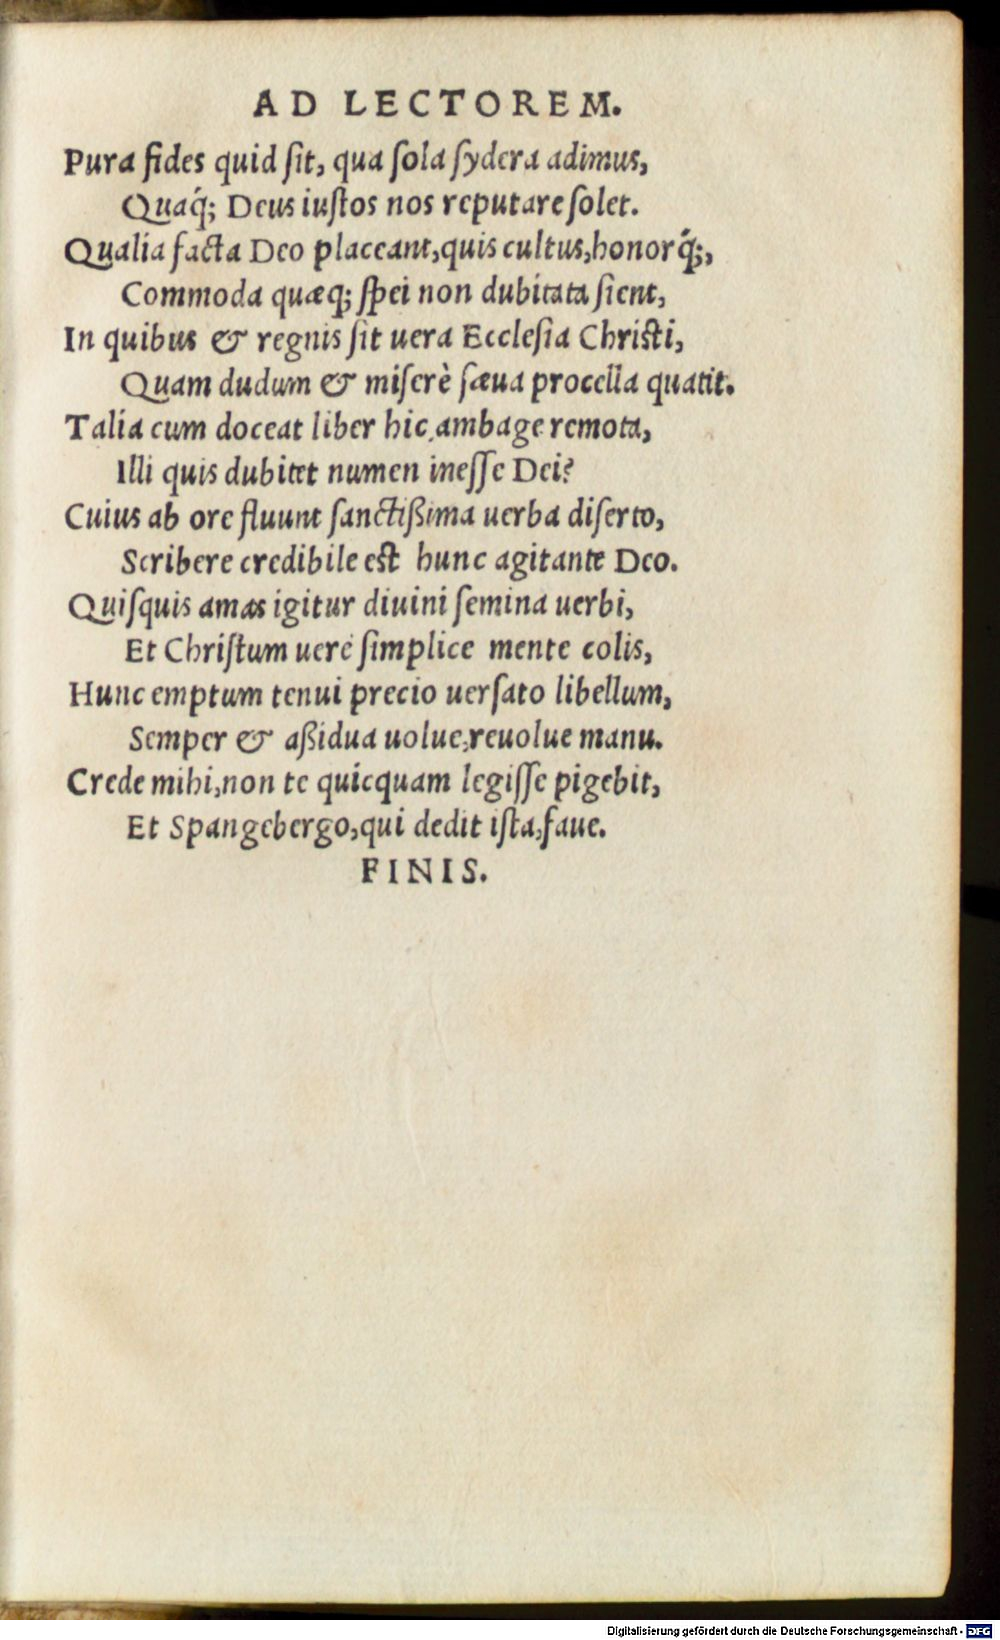 AD LECTOREM.
Pura fides quid ſit, qua ſola ſydera adimus,
Quaq́; Deus iuſtos nos reputare ſolet.
Qualia facta Deo placeant, quis cultus, honorq́;,
Commoda quæq; ſpei non dubitata ſient,
In quibus & regnis ſit uera Eccleſia Chriſti,
Quam dudum & miſerè ſæua procella quatit.
Talia cum doceat liber hic, ambage remota,
Illi quis dubitet numen ineſſe Dei?
Cuius ab ore fluunt ſanctißima uerba diſerto,
Scribere credibile est hunc agitante Deo.
Quiſquis amas igitur diuini ſemina uerbi,
Et Chriſtum uerè ſimplice mente colis,
Hunc emptum tenui precio uerſato libellum,
Semper & aßidua uolue, reuolue manu.
Crede mihi, non te quicquam legiſſe pigebit,
Et Spangebergo, qui dedit iſta, faue.
FINIS.
Digitalisierung gefördert durch die Deutsche Forschungsgemeinschaft - DFG